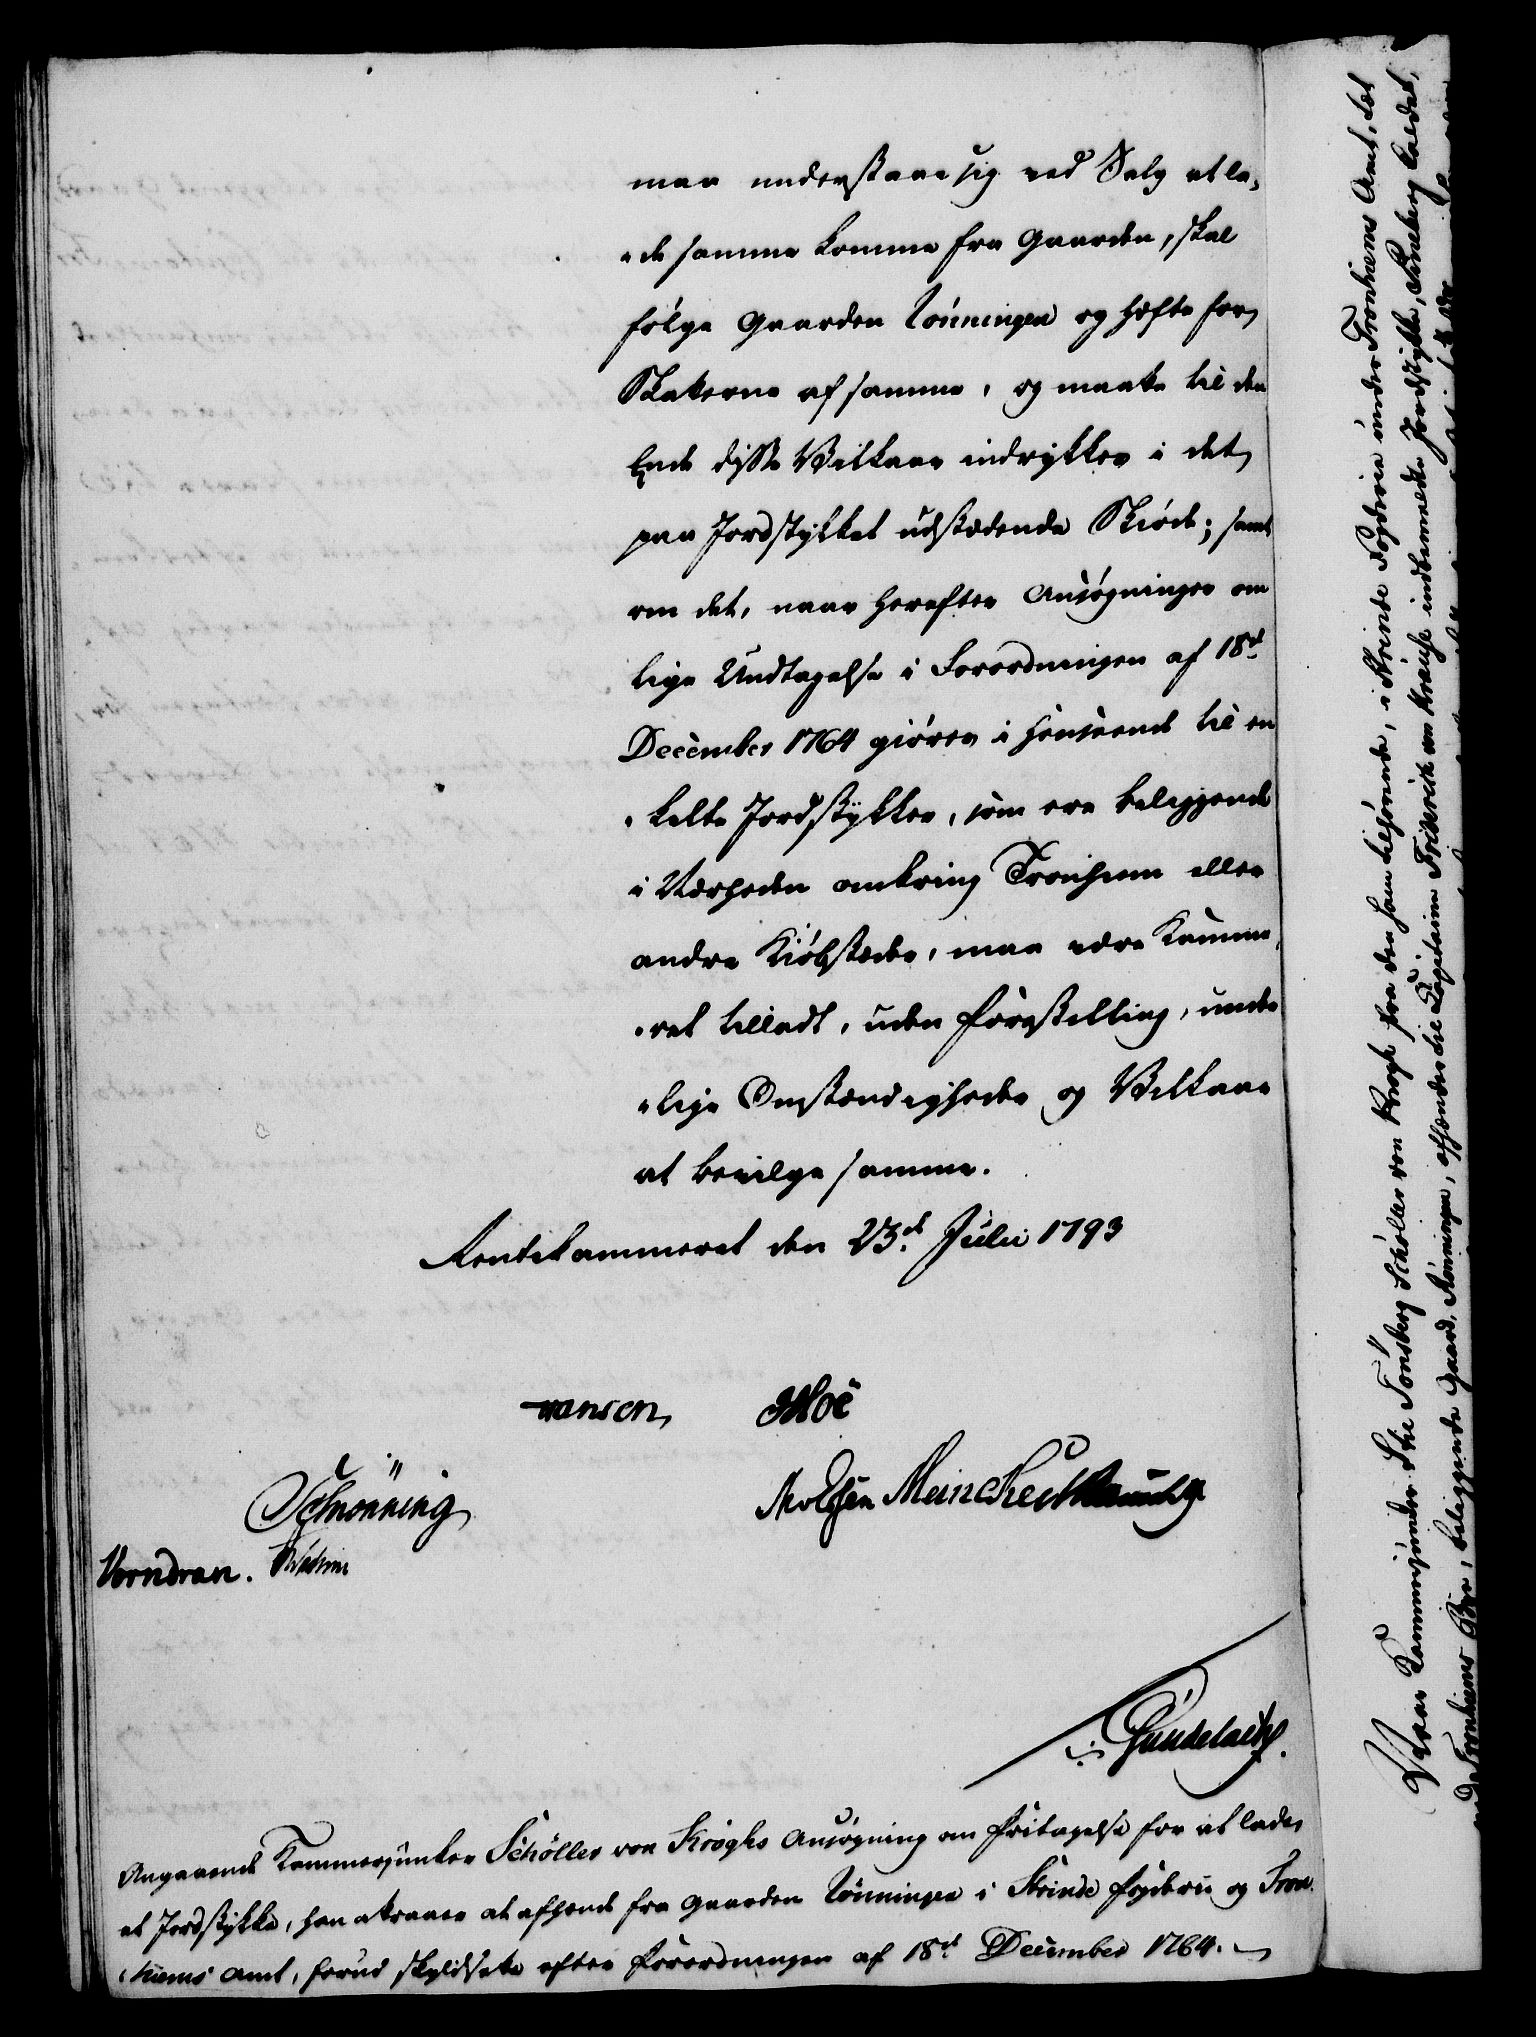 maa understaae sig ved Salg at la-
-de samme komme fra Gaarden, skal
følge Gaarden Rønningen og hæfte for
Skatterne af samme, og maatte til den
Ende disse Vilkaar indrykkes i det
paa Jordstykket udstædende Skiøde; samt
om det, naar herefter Ansøgninger om
lige Undtagelse i Forordningen af 18de
December 1764 giøres i Henseende til en
-kelte Jordstykker, som ere beliggende
i Nærheden omkring Tronhiem eller
andre Kiøbstæder, maa være Kamme-
-ret tilladt, uden Forestilling, under
-lige Omstændigheder og Vilkaar
at bevilge samme.
Rentekammeret den 23de Julii 1793
Hansen Moe
Schmønning
Meincke
Vorndran.
Gundelach.
Angaaende Kammerjunker Schøller von Kroghs Ansøgning om Fritagelse for at lade
et Jordstykke, han agter at afhænde fra Gaarden Rønningen i Strinde Fogderie og Tron-
-hiems Amt, forud skyldsette efter Forordningen af 18de December 1764.
Vores Kammerjunker Stie Tønsberg Schøller von Krogh fra den ham tilhørende, i Strinde Fogderie under Tronhiems Amt, tæt
ved Tronhiems Bye, beliggende Gaard, Rønningen, afhænder til Capitaine Friderich von Krause indbemeldte Jordstykke, kaldet,